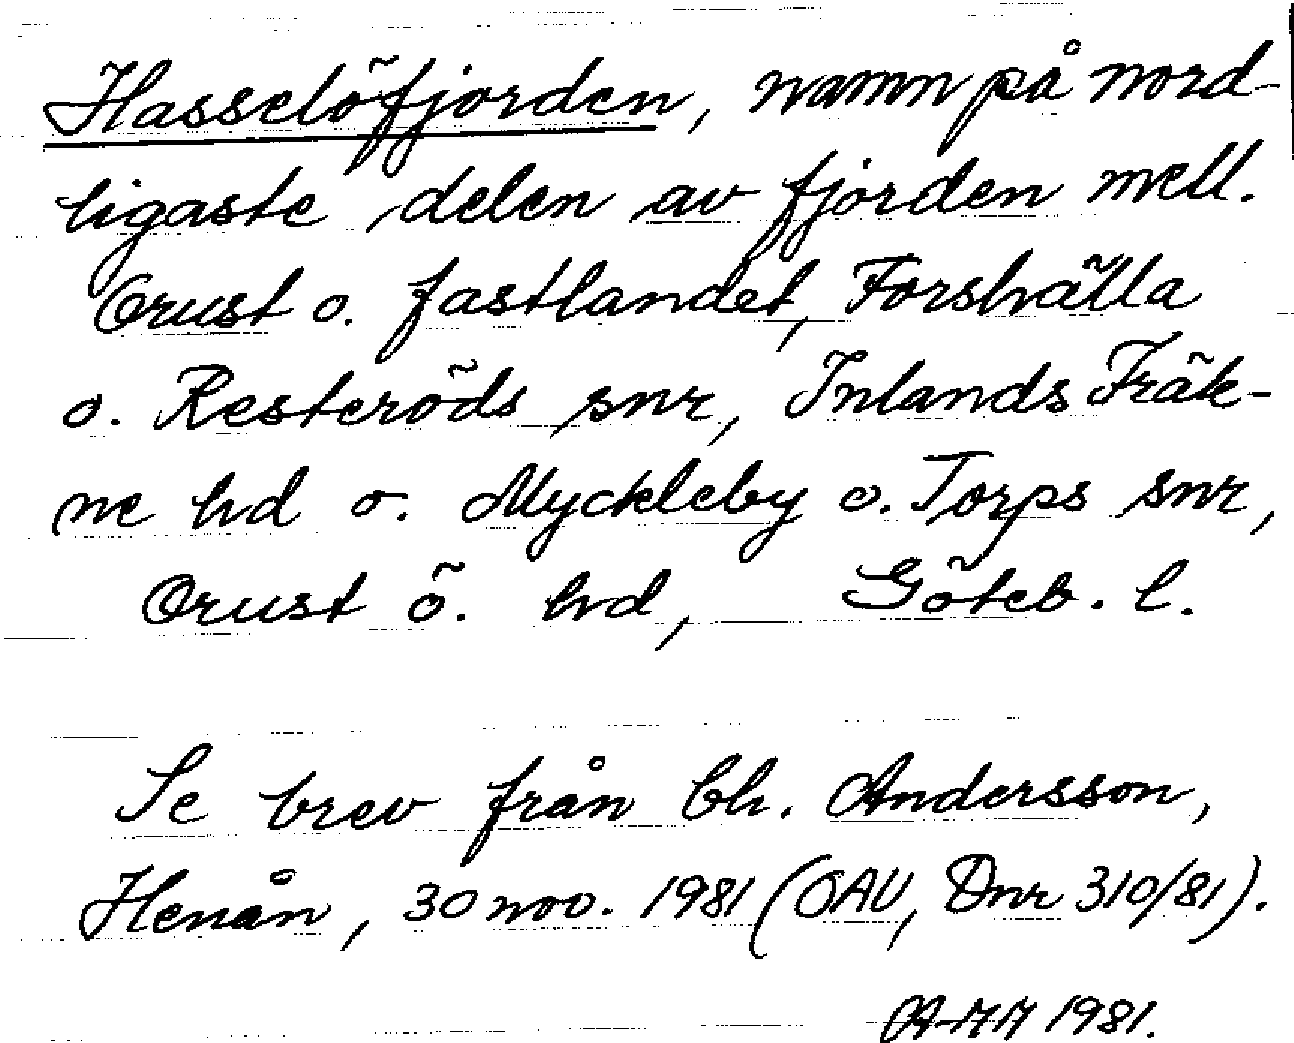 Hasselöfjorden, namn på nord-
ligaste delen av fjorden mell.
Orust o. fastlandet, Forshälla
o. Resteröds snr, Inlands Fräk-
ne hd o. Myckleby o. Torps snr,
Orust ö. hd, Göteb. l.
Se brev från Ch. Andersson,
Henån, 30 nov. 1981 (OAU, Dnr 310/81).
1981.